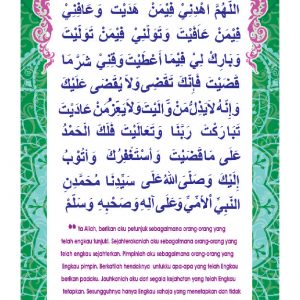 اَللّٰهُمَّ اهْدِنِيْ فِيْمَنْ هَدَيْتَ وَعَافِنِيْ
فِيْمَنْ عَافَيْتَ وَتَوَلَّنِيْ فِيْمَنْ تَوَلَّيْتَ
وَبَارِكْ لِيْ فِيْمَا أَعْطَيْتَ وَقِنِيْ شَرَّ مَا
قَضَيْتَ فَإِنَّكَ تَقْضِيْ وَلَا يُقْضَى عَلَيْكَ
وَإِنَّهُ لَا يَذِلُّ مَنْ وَّالَيْتَ وَلَا يَعِزُّ مَنْ عَادَيْتَ
تَبَارَكْتَ رَبَّنَا وَتَعَالَيْتَ فَلَكَ الْحَمْدُ
عَلَى مَا قَضَيْتَ وَأَسْتَغْفِرُكَ وَأَتُوْبُ
إِلَيْكَ وَصَلَّى اللهُ عَلَى سَيِّدِنَا مُحَمَّدِنِ
النَّبِيِّ الْأُمِّيِّ وَعَلَى آلِهِ وَصَحْبِهِ وَسَلَّمَ
"Ya Allah, berikan aku petunjuk sebagaimana orang-orang yang
telah engkau tunjuki. Sejahterakanlah aku sebagaimana orang-orang yang
telah engkau sejahterkan. Pimpinlah aku sebagaimana orang-orang yang
Engkau pimpin. Berkatilah hendaknya untukku apa-apa yang telah Engkau
berikan padaku. Jauhkanlah aku dari segala kejahatan yang telah Engkau
tetapkan. Sesungguhnya hanya Engkau sahaja yang menetapkan dan tidak